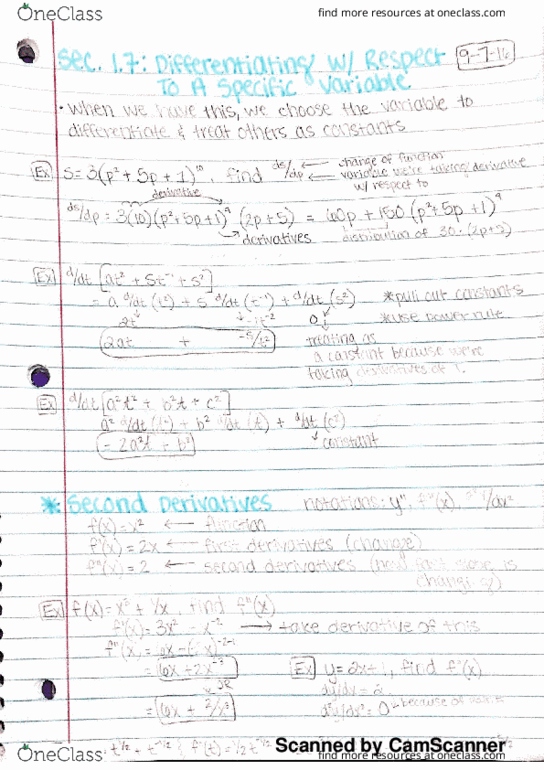 OneClass
find more resources at oneclass.com
Sec. 1.7: Differentiating w/ Respect
To A Specific Variable
9-7-16
• When we have this, we choose the variable to
differentiate & treat others as constants
Ex S = 3(p² + 5p + 1)¹⁰, find ds/dp ← change of function
← variable we're taking derivative
w/ respect to
derivative
ds/dp = 3(10)(p²+5p+1)⁹ (2p+5) = 60p + 150 (p²+5p+1)⁹
→ derivatives
distribution of 30 · (2p+5)
Ex d/dt [at² + st⁻¹ + s²]
= a d/dt (t²) + s d/dt (t⁻¹) + d/dt (s²) *pull out constants
2t -t⁻² 0 *use power rule
2at + -s/t² treating as
a constant because we're
taking derivatives of T.
Ex d/dt [a²t² + b²t + c²]
a² d/dt (t²) + b² d/dt (t) + d/dt (c²)
= 2a²t + b² constant
* Second Derivatives notations: y", f"(x), d²y/dx²
f(x) = x² ← function
f'(x) = 2x ← first derivatives (change)
f"(x) = 2 ← second derivatives (how fast slope is
changing)
Ex f(x) = x³ + 1/x, find f"(x)
f'(x) = 3x² - x⁻² → take derivative of this
f"(x) = 6x -
= 6x + 2x⁻³
or
= 6x + 2/x³
Ex y = 2x+1, find f"(x)
dy/dx = 2
d²y/dx² = 0 because of
t^½ + t^-½, f'(t) = ½t^-½
OneClass
Scanned by CamScanner
find more resources at oneclass.com